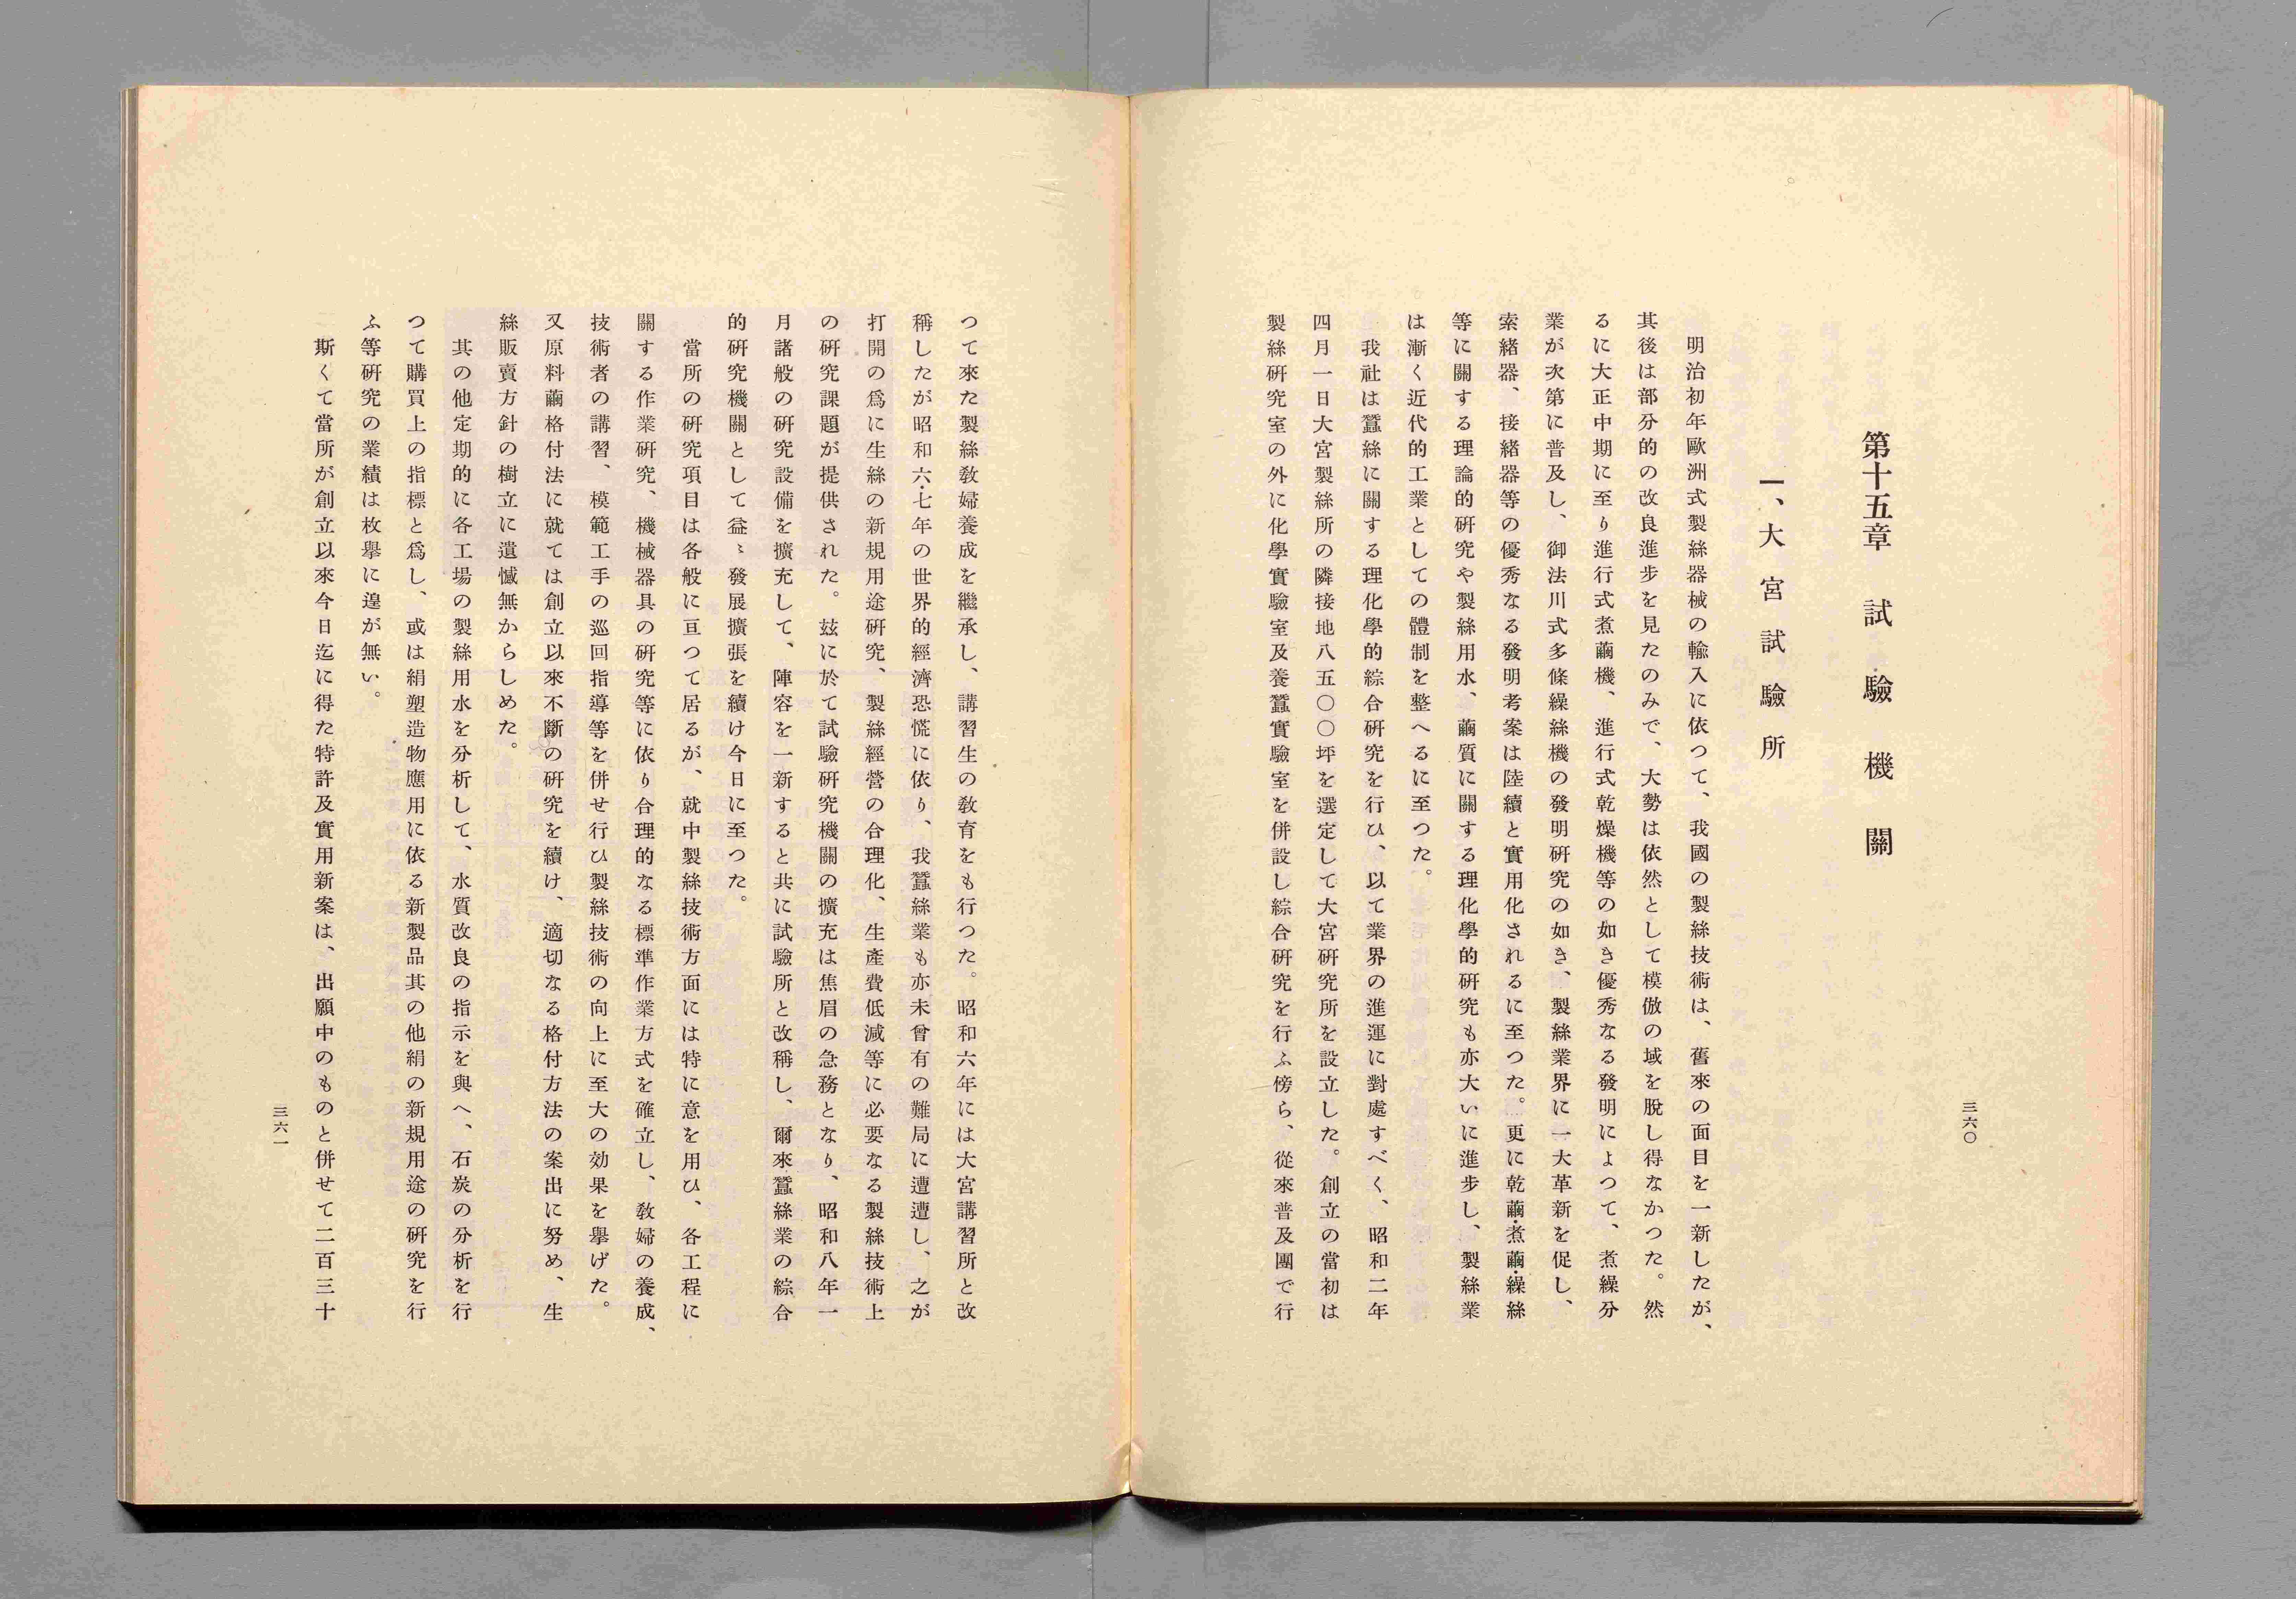 三六〇
第十五章　試驗機關
一、大宮試驗所
明治初年歐洲式製絲器械の輸入に依つて、我國の製絲技術は、舊來の面目を一新したが、
其後は部分的の改良進步を見たのみで、大勢は依然として模倣の域を脫し得なかつた。然
るに大正中期に至り進行式煮繭機、進行式乾燥機等の如き優秀なる發明によつて、煮繰分
業が次第に普及し、御法川式多條繰絲機の發明硏究の如き、製絲業界に一大革新を促し、
索緖器、接緖器等の優秀なる發明考案は陸續と實用化されるに至つた。更に乾繭・煮繭・繰絲
等に關する理論的硏究や製絲用水、繭質に關する理化學的硏究も亦大いに進步し、製絲業
は漸く近代的工業としての體制を整へるに至つた。
我社は蠶絲に關する理化學的綜合硏究を行ひ、以て業界の進運に對處すべく、昭和二年
四月一日大宮製絲所の隣接地八五〇〇坪を選定して大宮硏究所を設立した。創立の當初は
製絲硏究室の外に化學實驗室及養蠶實驗室を併設し綜合硏究を行ふ傍ら、從來普及團で行
つて來た製絲敎婦養成を繼承し、講習生の敎育をも行つた。昭和六年には大宮講習所と改
稱したが昭和六・七年の世界的經濟恐慌に依り、我蠶絲業も亦未曾有の難局に遭遭し、之が
打開の爲に生絲の新規用途硏究、製絲經營の合理化、生產費低減等に必要なる製絲技術上
の硏究課題が提供された。玆に於て試驗硏究機關の擴充は焦眉の急務となり、昭和八年一
月諸般の硏究設備を擴充して、陣容を一新すると共に試驗所と改稱し、爾來蠶絲業の綜合
的硏究機關として益〻發展擴張を續け今日に至つた。
當所の硏究項目は各般に亘つて居るが、就中製絲技術方面には特に意を用ひ、各工程に
關する作業硏究、機械器具の硏究等に依り合理的なる標準作業方式を確立し、敎婦の養成、
技術者の講習、模範工手の巡回指導等を併せ行ひ製絲技術の向上に至大の効果を擧げた。
又原料繭格付法に就ては創立以來不斷の硏究を續け、適切なる格付方法の案出に努め、生
絲販賣方針の樹立に遺憾無からしめた。
其の他定期的に各工場の製絲用水を分析して、水質改良の指示を與へ、石炭の分析を行
つて購買上の指標と爲し、或は絹塑造物應用に依る新製品其の他絹の新規用途の硏究を行
ふ等硏究の業績は枚擧に遑が無い。
斯くて當所が創立以來今日迄に得た特許及實用新案は、出願中のものと併せて二百三十
三六一